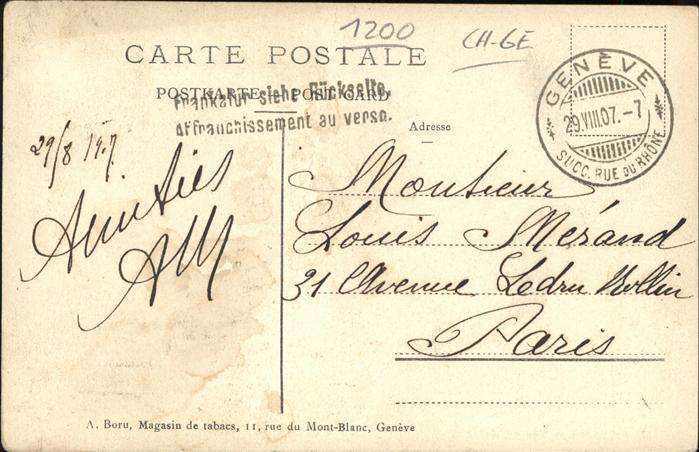 1200
CH-GE
CARTE POSTALE
POSTKARTE — POST CARD
Frankatur siehe Rückseite.
affranchissement au verso.
Adresse
GENÈVE
29.VIII.07.-7
SUCC. RUE DU RHÔNE
29/8 1907
Amitiés
AM
Monsieur
Louis Mérand
31 Avenue Ledru Rollin
Paris
A. Boru, Magasin de tabacs, 11, rue du Mont-Blanc, Genève